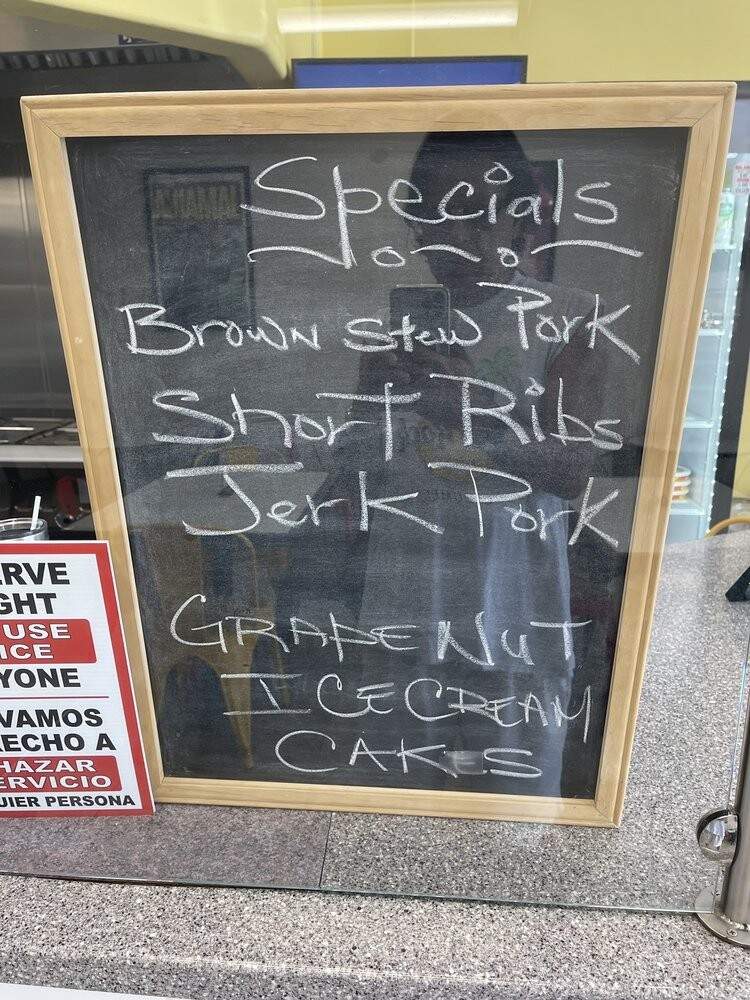 Specials
Brown Stew Pork
Short Ribs
Jerk Pork
GRAPENUT
ICE CREAM
CAKES
RVE
GHT
USE
ICE
YONE
VAMOS
ECHO A
HAZAR
ERVICIO
UIER PERSONA